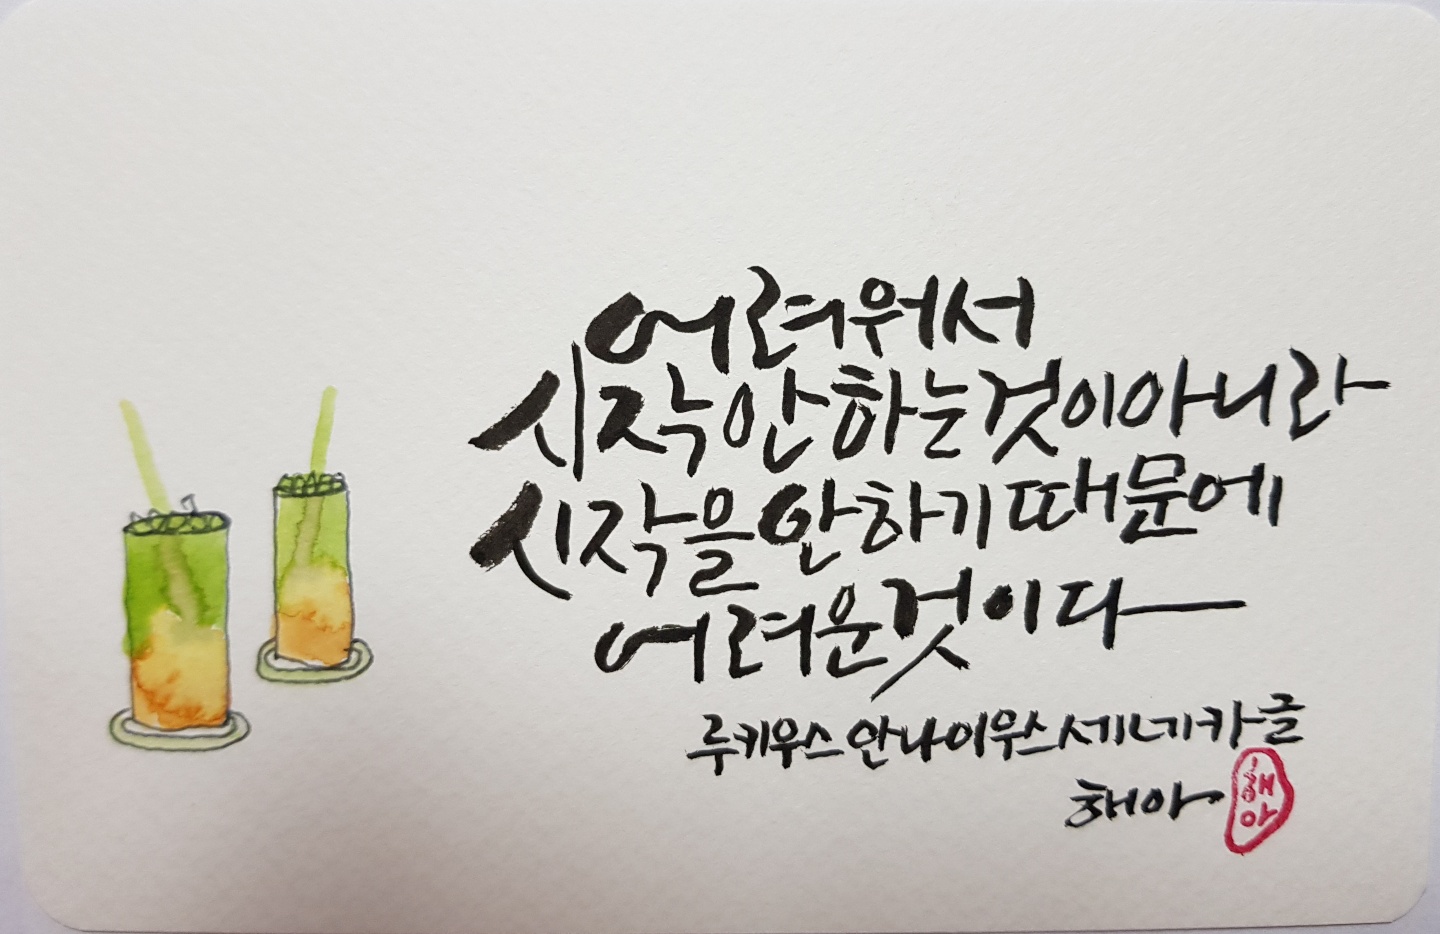 어려워서
시작 안 하는 것이 아니라
시작을 안 하기 때문에
어려운 것이다
루키우스 안나이우스 세네카 글
해아
해아